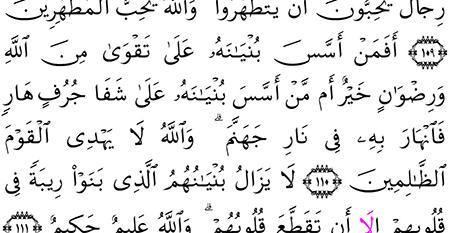 رِجَالٌ يُحِبُّونَ أَن يَتَطَهَّرُوا۟ وَٱللَّهُ يُحِبُّ ٱلْمُطَّهِّرِينَ
١٠٩ أَفَمَنْ أَسَّسَ بُنْيَـٰنَهُۥ عَلَىٰ تَقْوَىٰ مِنَ ٱللَّهِ
وَرِضْوَٰنٍ خَيْرٌ أَم مَّنْ أَسَّسَ بُنْيَـٰنَهُۥ عَلَىٰ شَفَا جُرُفٍ هَارٍ
فَٱنْهَارَ بِهِۦ فِى نَارِ جَهَنَّمَ ۗ وَٱللَّهُ لَا يَهْدِى ٱلْقَوْمَ
ٱلظَّـٰلِمِينَ ١١٠ لَا يَزَالُ بُنْيَـٰنُهُمُ ٱلَّذِى بَنَوْا۟ رِيبَةً فِى
قُلُوبِهِمْ إِلَّا أَن تَقَطَّعَ قُلُوبُهُمْ ۗ وَٱللَّهُ عَلِيمٌ حَكِيمٌ ١١١